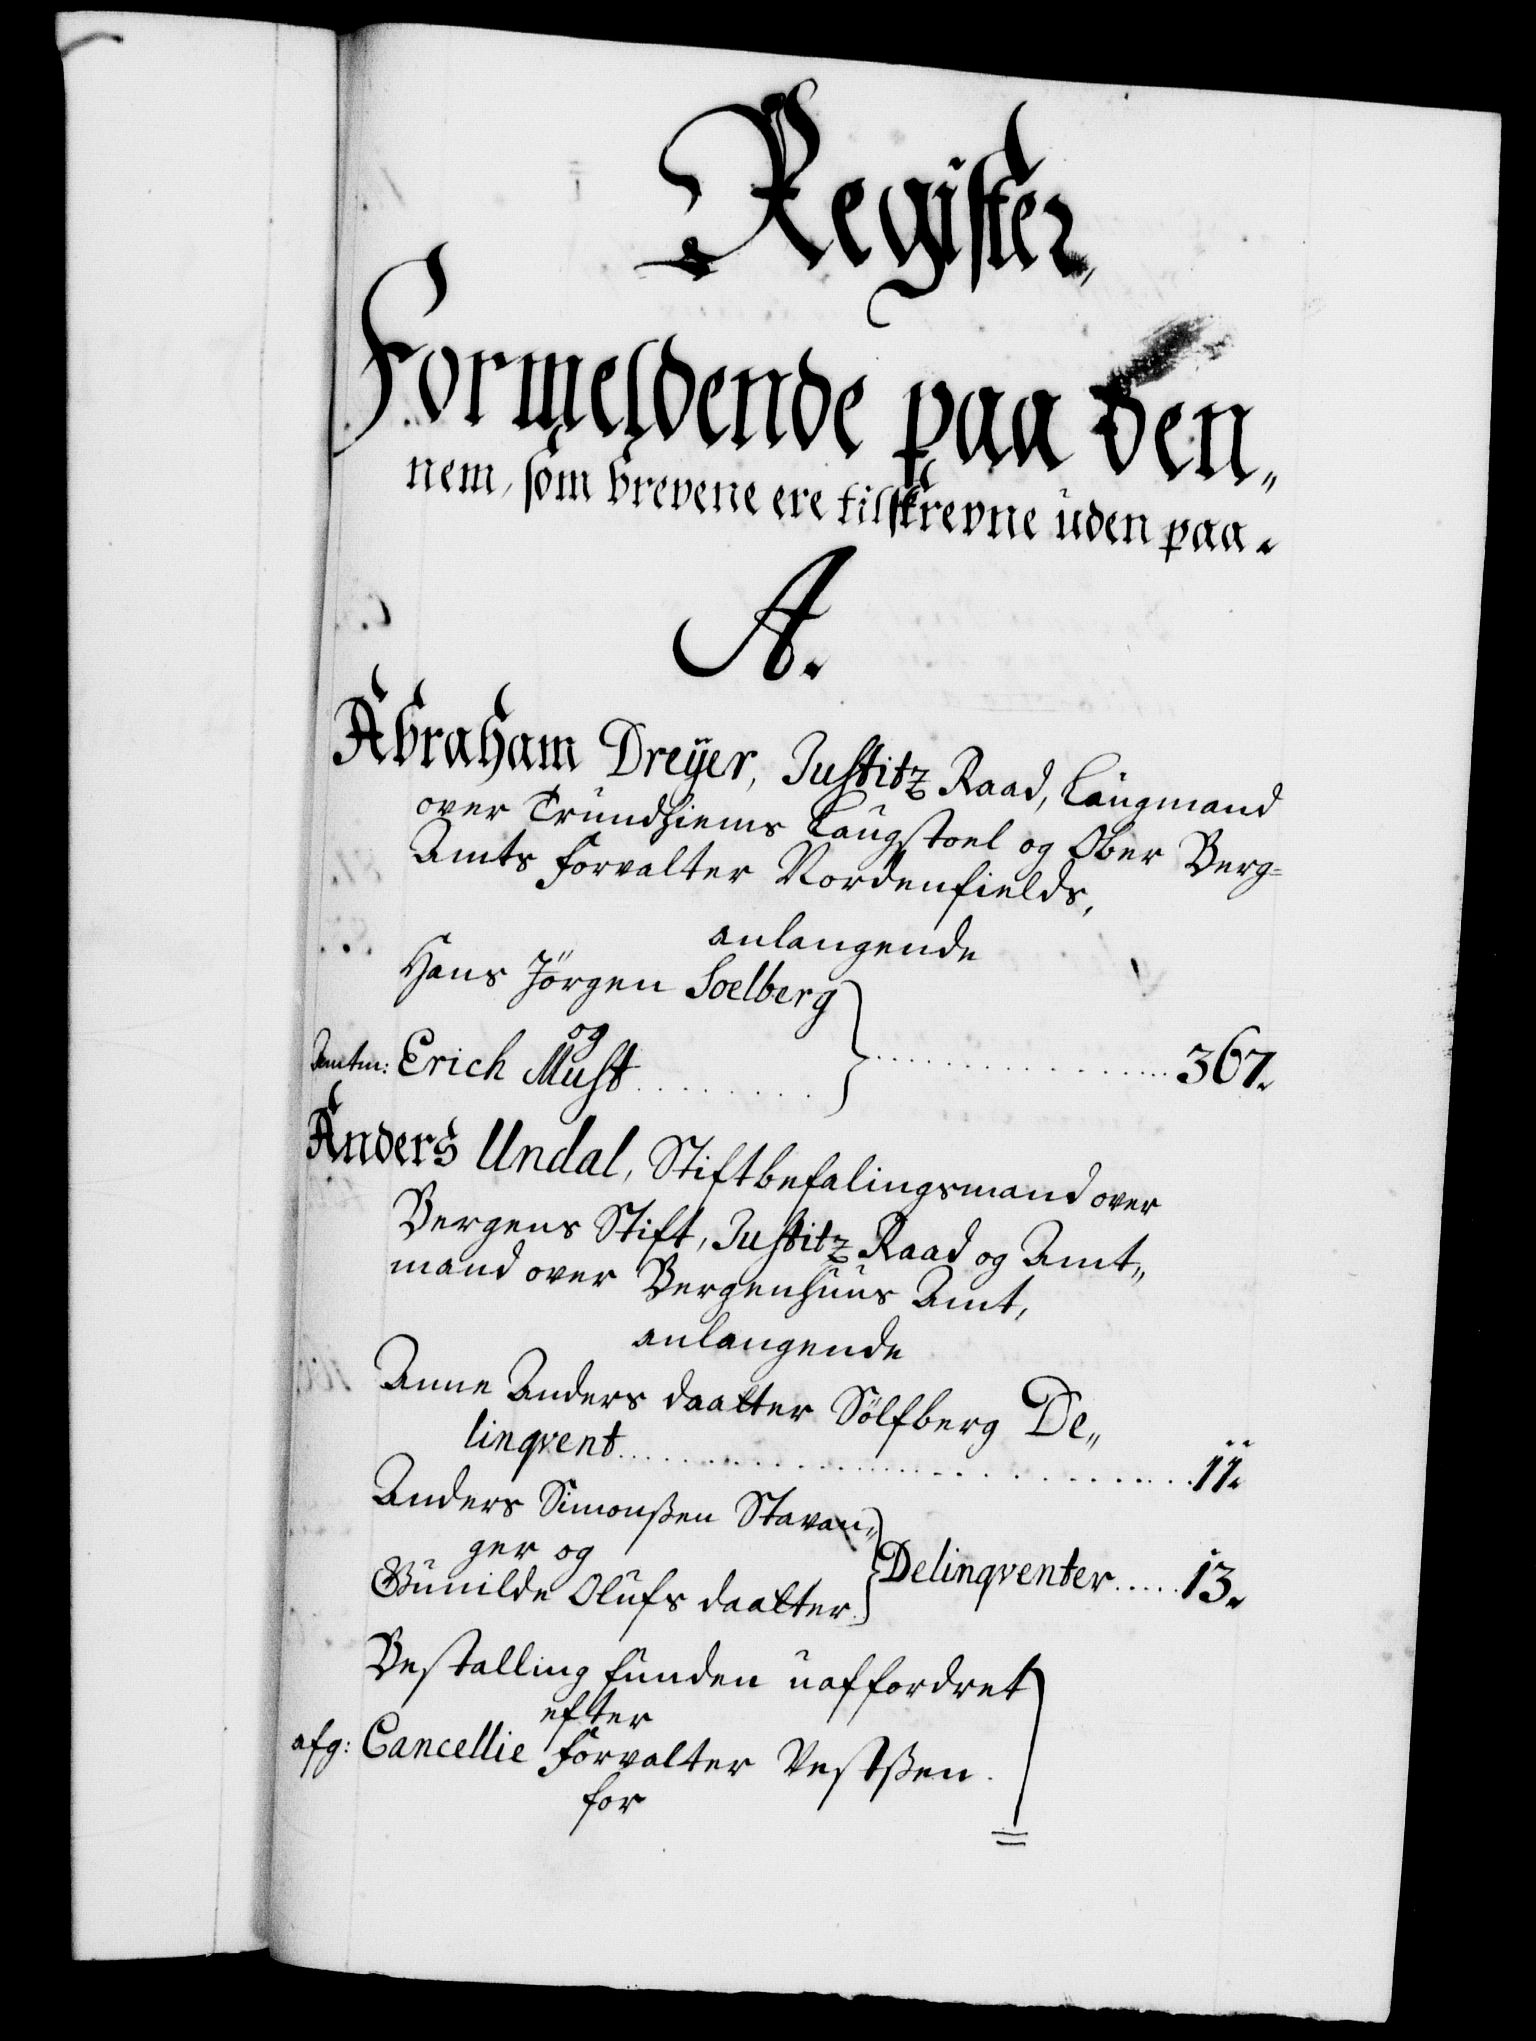 Register,
Formeldende paa den„
nem, som brevene ere tilskrevne uden paa.
A.
Abraham Dreÿer, Justitz Raad, Laugmand
over Trundhiems Laugstoel og Ober Berg=
Amts forvalter Nordenfields,
anlangende
Hans Jörgen Soelberg
og
Amtm: Erich Must
367.
Anders Undal, Stiftbefalingsmand over
Bergens Stift, Justitz Raad og Amt„
mand over Bergenhuus Amt,
anlangende
Anne Anders daatter Sölfberg De„
linqvent 11.
Anders Simonßen Stavan„
ger og
Gunilde Olufs daatter
Delinqventer 13.
Bestalling funden uaffordret
efter
afg: Cancellie forvalter Vestßen.
for